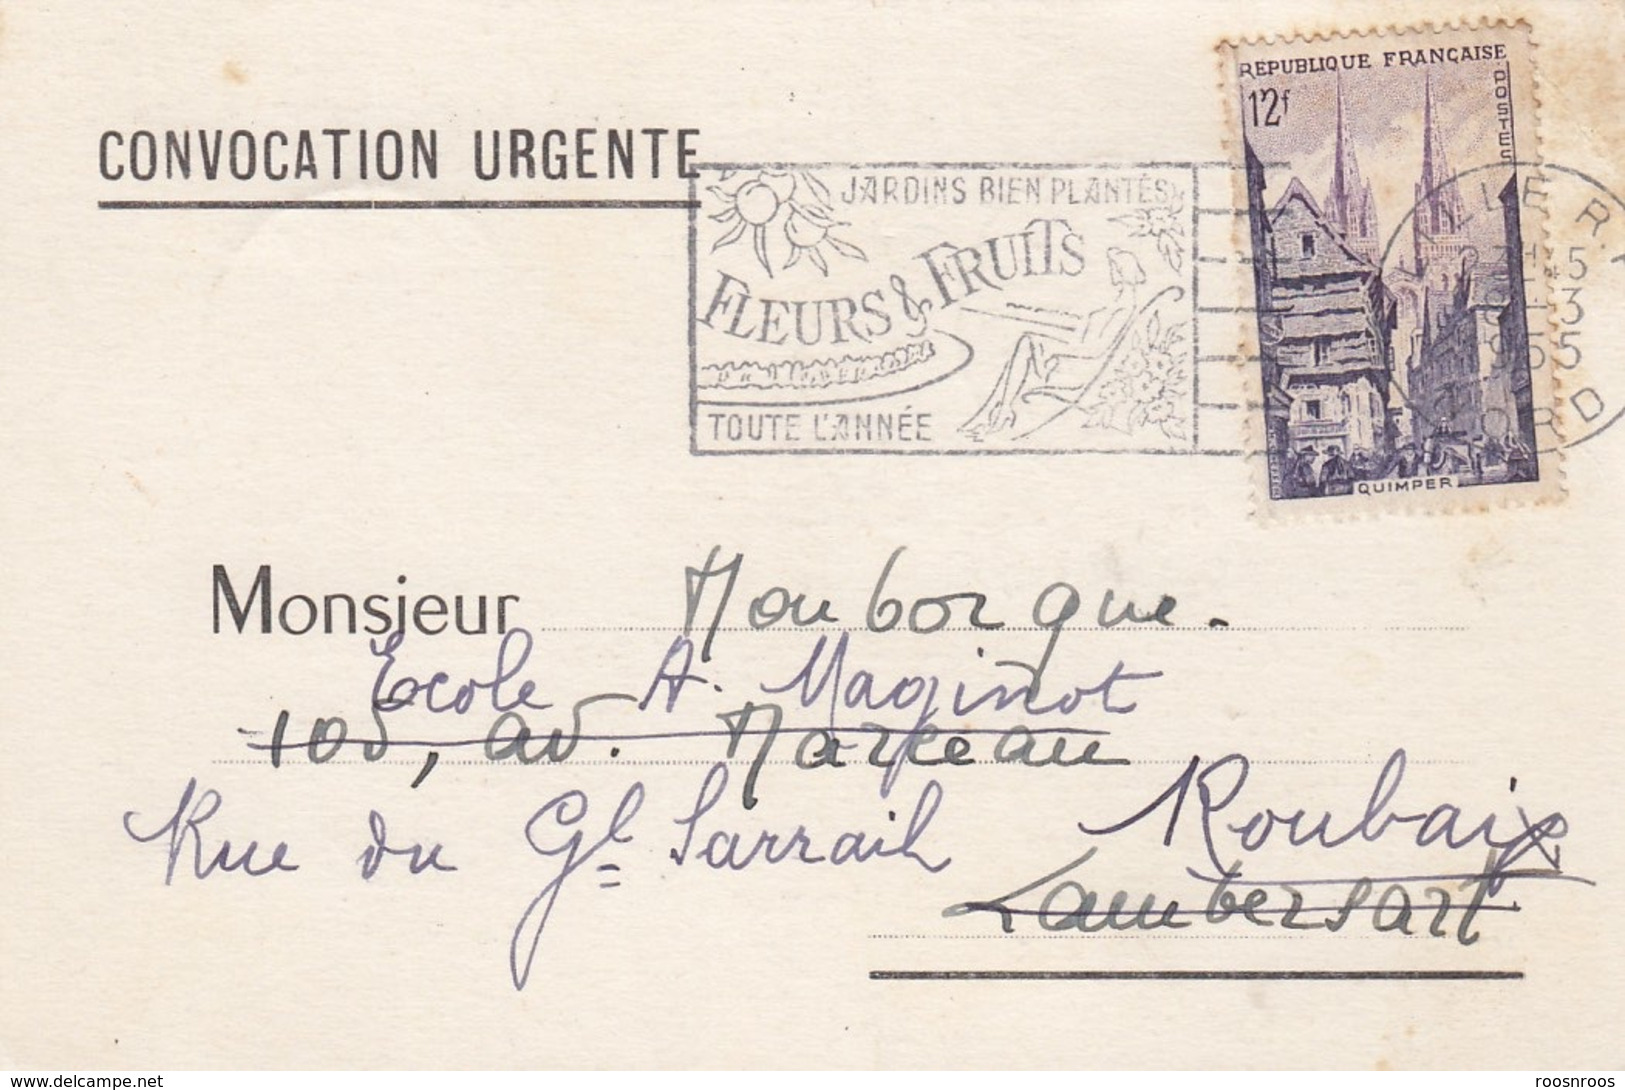 RÉPUBLIQUE FRANÇAISE
POSTES
12f
CONVOCATION URGENTE
JARDINS BIEN PLANTÉS
FLEURS & FRUITS
TOUTE L'ANNÉE
LILLE R.P.
8 - 3
1955
NORD
QUIMPER
Monsieur Mauborgne.
Ecole A. Maginot
105, av. Marceau
Rue du Gl Sarrail Roubaix
Lambersart
www.delcampe.net
roosnroos